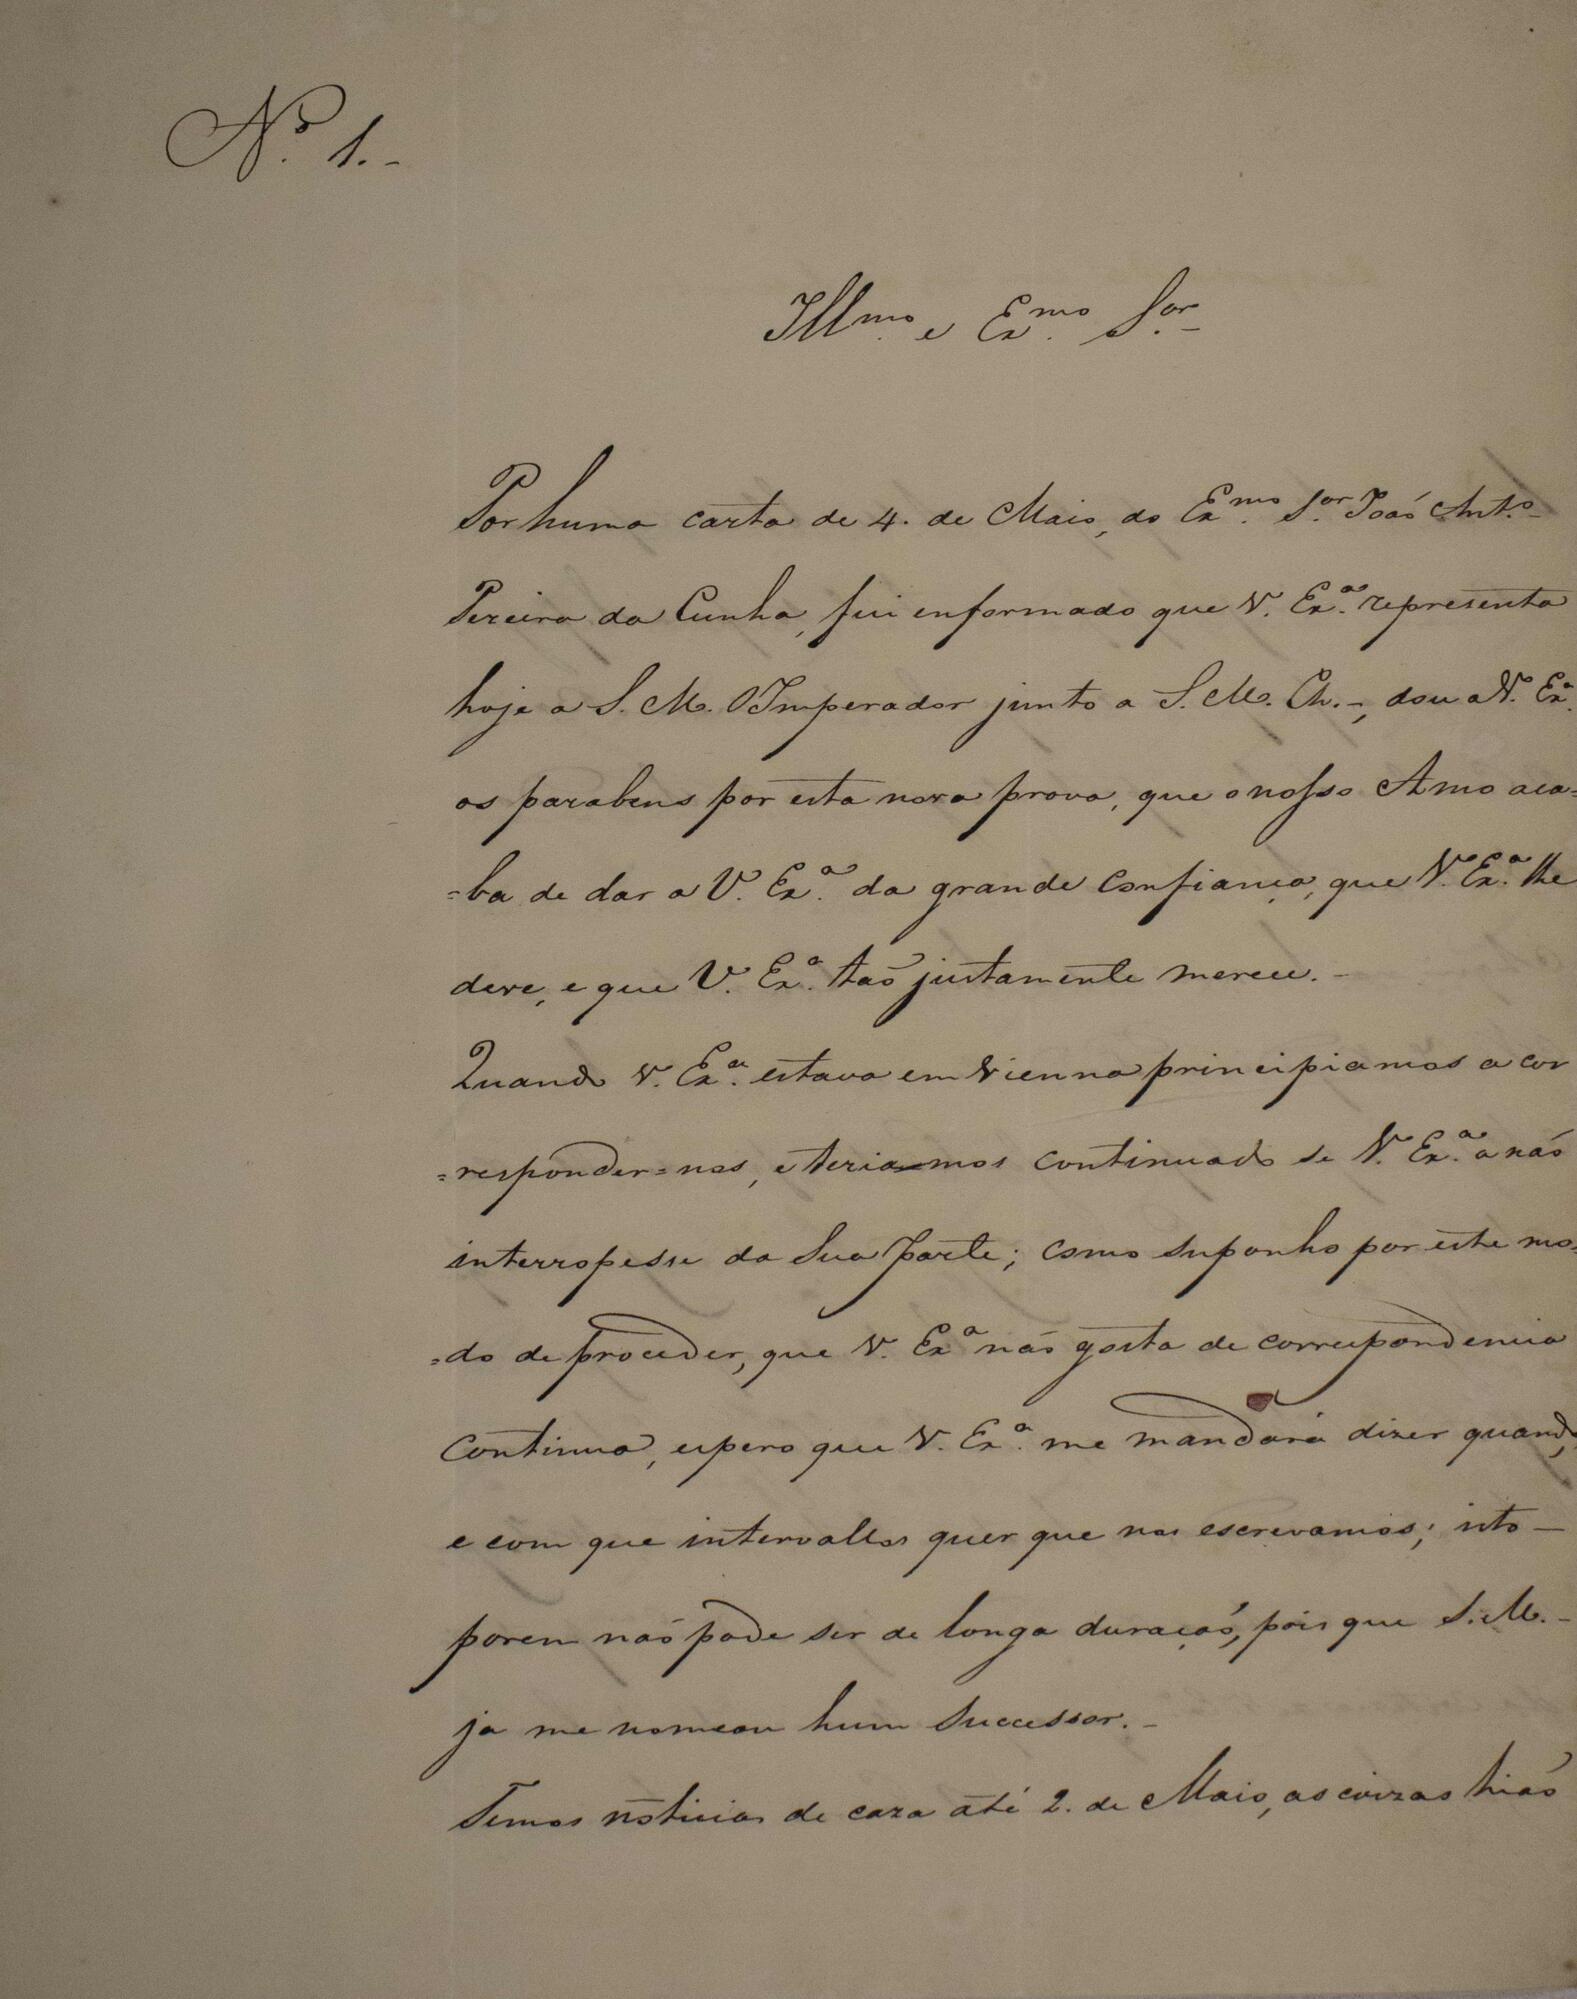 Nº. 1.-
Illmo. e Exmo. Sor.
Por huma carta de 4. de Maio, do Exmo. Sor. João Anto.
Pereira da Cunha, fui enformado que V. Exª. representa
hoje a S. M. O Imperador junto a S. M. Ch.-, dou a V. Exª.
os parabens por esta nova prova, que o nosso Amo aca=
=ba de dar a V. Exª. da grande Confiança, que V. Exª. lhe
deve, e que V. Exª. taõ justamente merece.-
Quando V. Exª. estava em Vienna principiamos a cor
=responder=nos, e teriamos continuado se V. Exª. a naõ
interropesse da Sua parte; como suponho por este mo=
=do de proceder, que V. Exª naõ gosta de correspondencia
Continua, espero que V. Exª. me mandará dizer quando,
e com que intervallos quer que nos escrevamos; isto —
porem naõ pode ser de longa duraçaõ, pois que S. M.-
ja me nomeou hum Successor.-
Temos noticias de caza até 2. de Maio, as coizas hiaõ